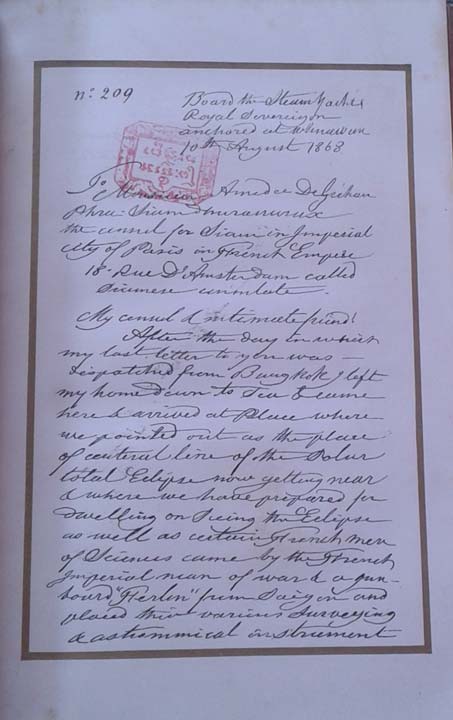 No. 209
Board the Steam Yacht
Royal Sovereign
anchored at Whuawan
10th August 1868
To Monsieur Amedee De Grehan
Phra Siam dhuranurux
the consul for Siam in Imperial
City of Paris in French Empire
18 Rue D'Amsterdam called
Siamese consulate.
My consul & intimate friend!
After the day in which
my last letter to you was
dispatched from Bangkok I left
my home down to Sea & came
here & arrived at Place where
we pointed out as the place
of central line of the Solar
total Eclipse now getting near
& where we have prepared for
dwelling on Seeing the Eclipse
as well as certain French men
of Sciences came by the French
Imperial man of war & a gun-
board "Frelon" from Saigon and
placed their various Surveying
& astronomical instrument